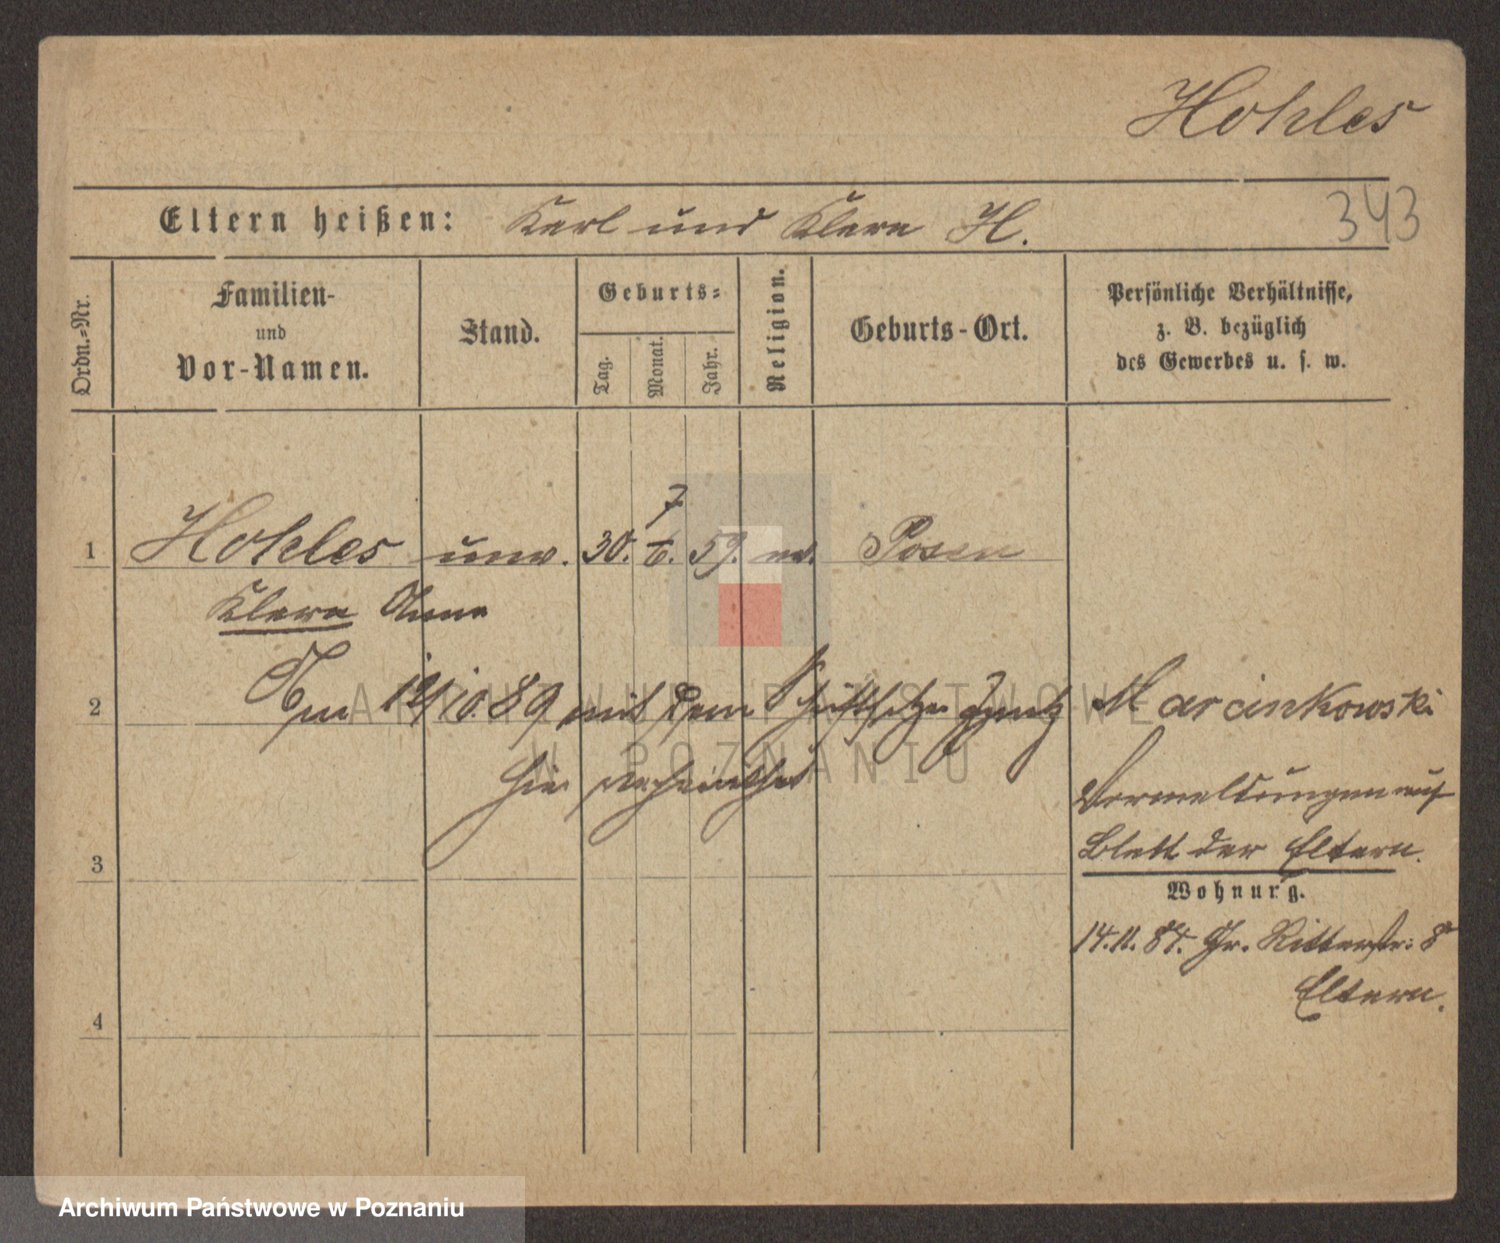 Hohles
Eltern heißen: Karl und Klara H.
343
Ordn.-Nr.
Familien-
und
Vor-Namen.
Stand.
Geburts-
Tag.
Monat.
Jahr.
Religion.
Geburts-Ort.
Persönliche Verhältnisse,
z. B. bezüglich
des Gewerbes u. s. w.
7
1 Hohles unv. 30. 6. 59. ev. Posen
Klara Anna
2 Am 12/10.89 mit dem Schriftsetzer Ignatz Marcinkowski
hier verheirathet
Vermeldungen auf
Blatt der Eltern.
3
Wohnung.
14.11.84. Gr. Ritterstr: 8
Eltern.
4
ARCHIWUM PAŃSTWOWE
W POZNANIU
Archiwum Państwowe w Poznaniu